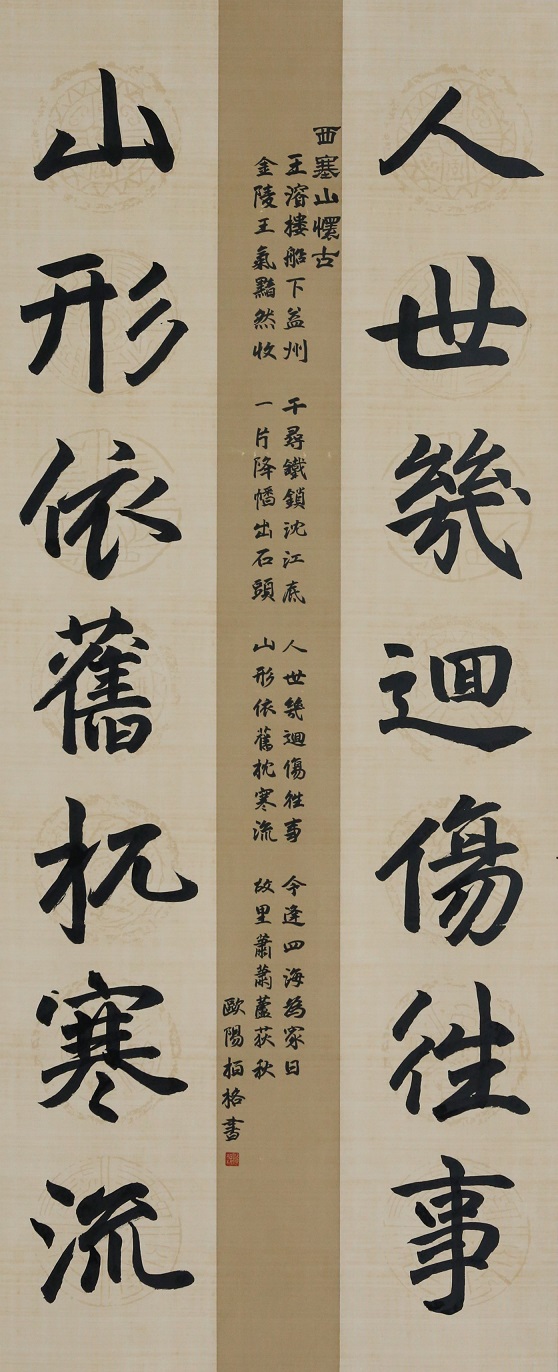 人世幾迴傷往事
西塞山懷古
王濬樓船下益州 千尋鐵鎖沈江底 人世幾迴傷往事 今逢四海為家日
金陵王氣黯然收 一片降幡出石頭 山形依舊枕寒流 故里蕭蕭蘆荻秋
歐陽栢格書
山形依舊枕寒流